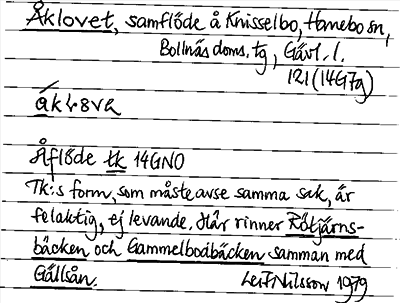 Åklovet, samflöde å Knisselbo, Hanebo sn,
Bollnäs doms. tg, Gävl. l.
121 (14G7g)
Åflöde tk 14GNO
Tk:s form, som måste avse samma sak, är
felaktig, ej levande. Här rinner Rötjärns-
bäcken och Gammelbodbäcken samman med
Gällsån. Leif Nilsson 1979